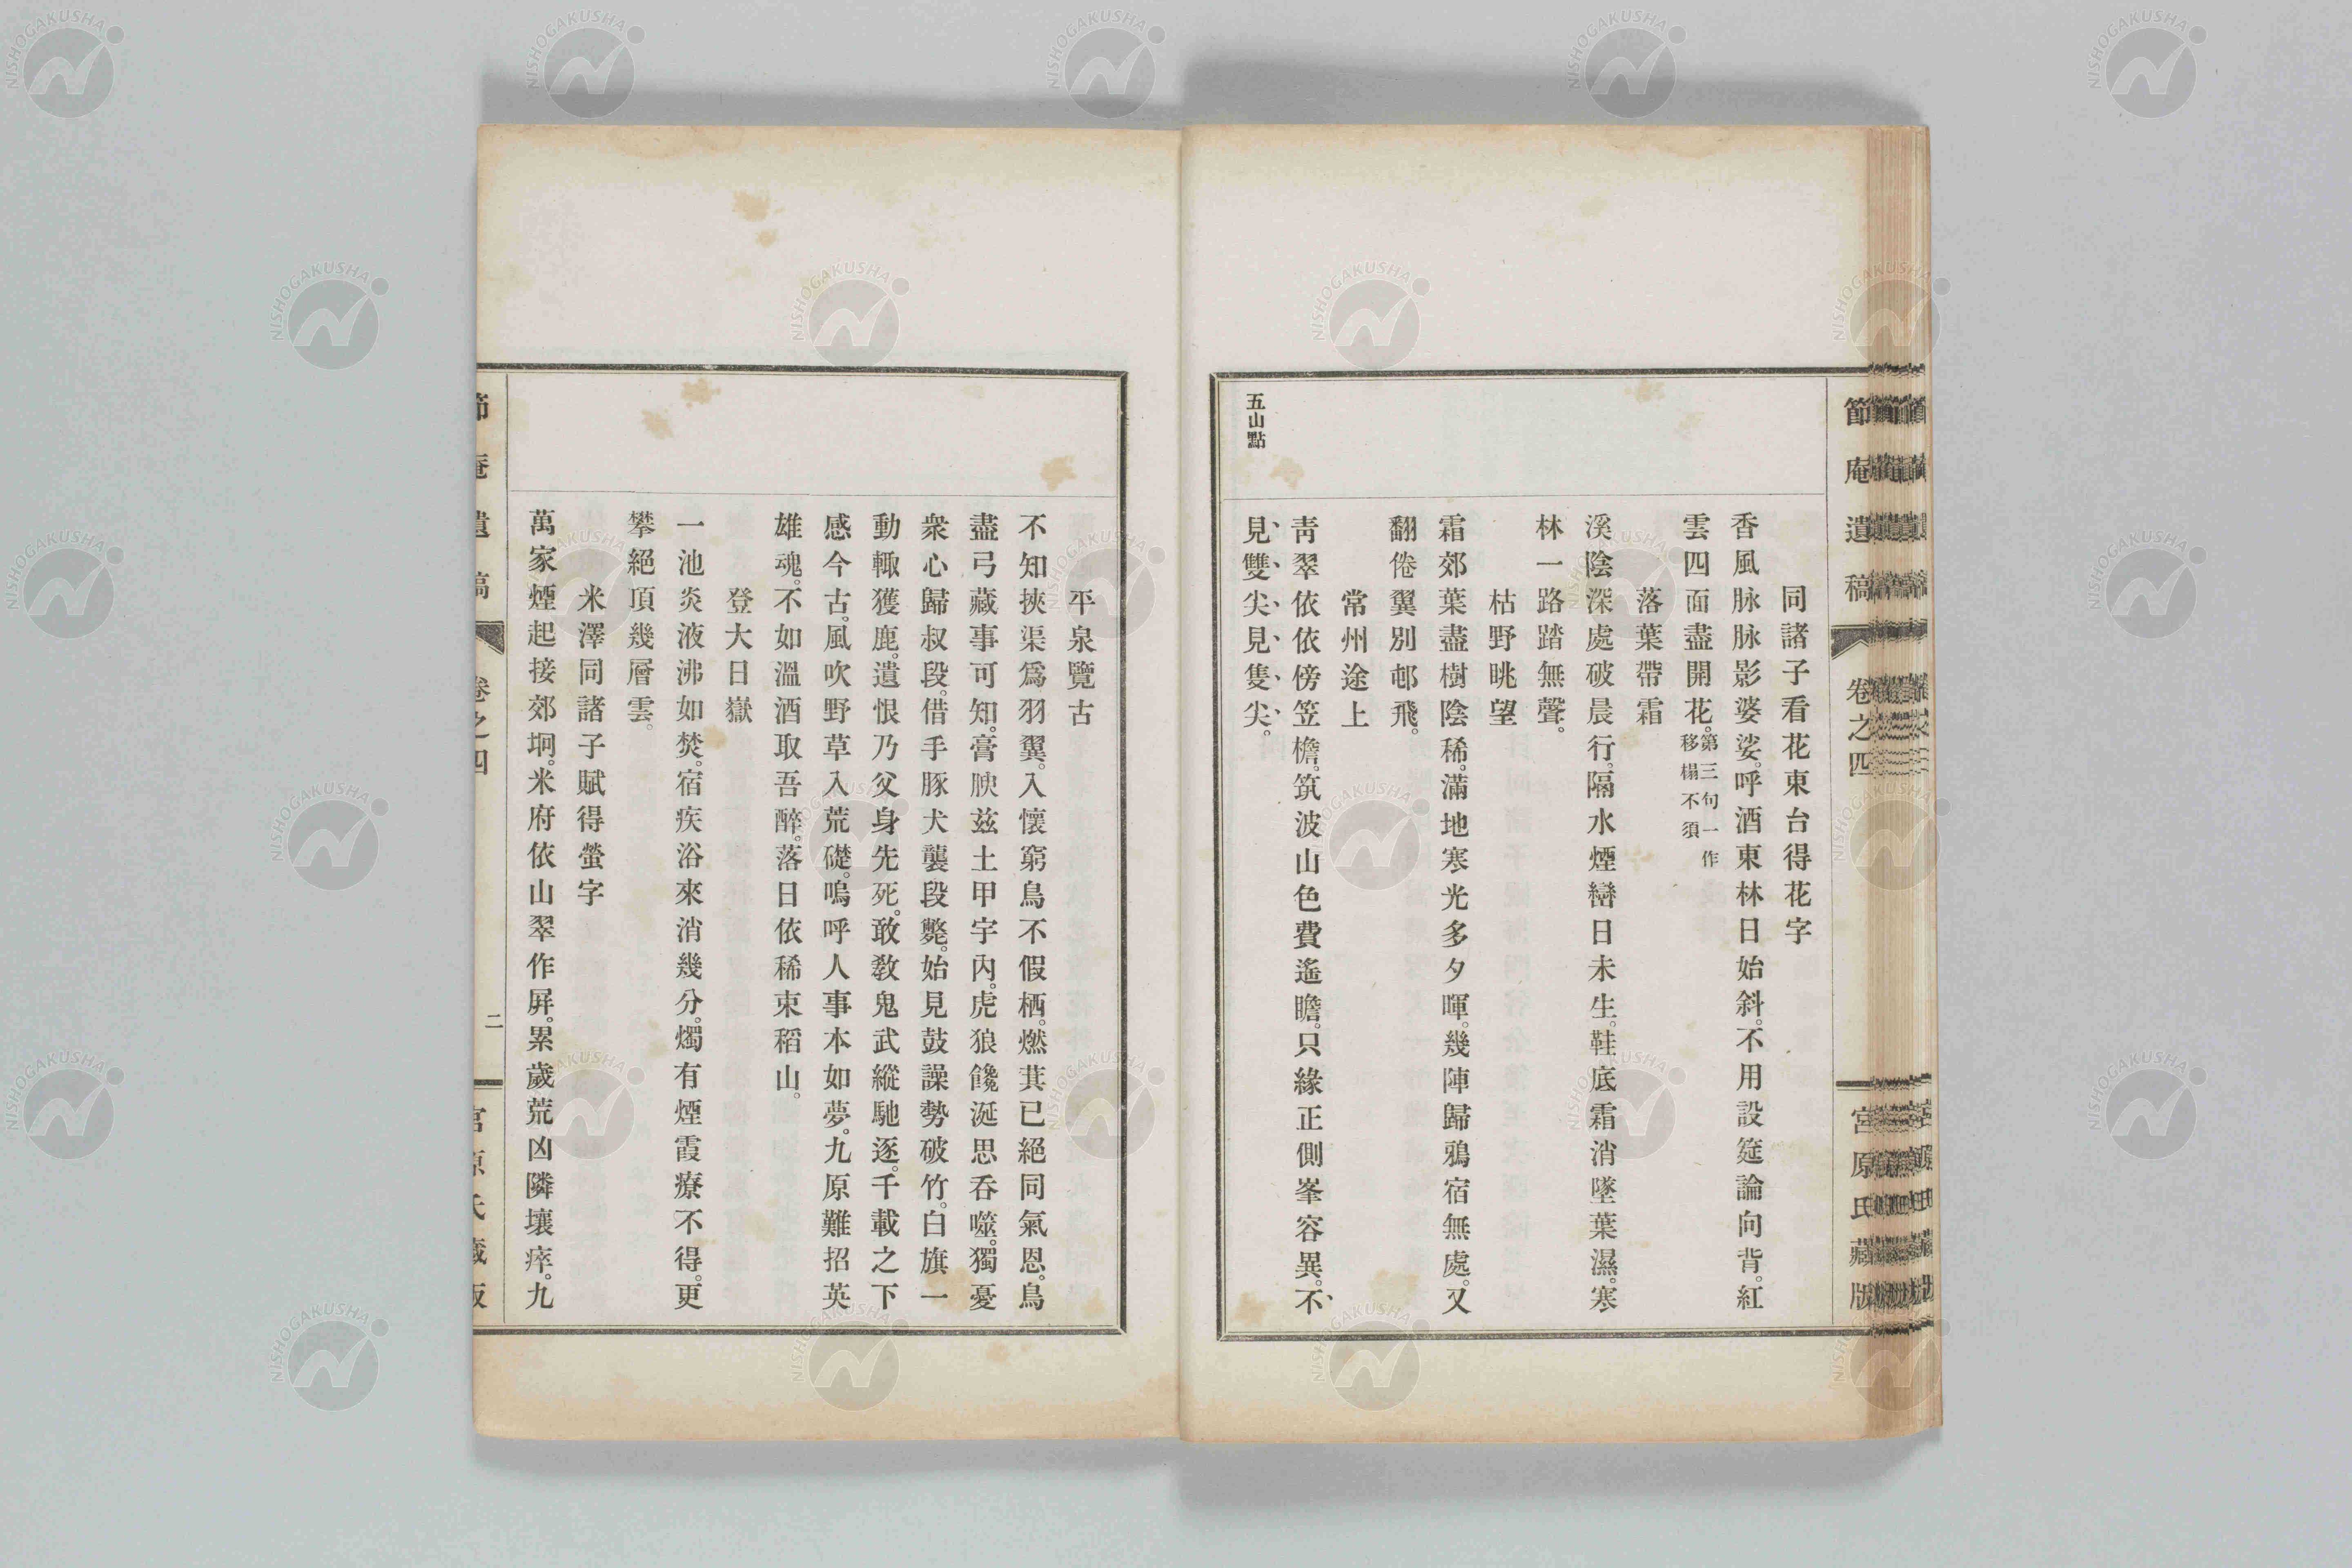 節庵遺稿 卷之四 宮原氏藏版
同諸子看花東台得花字
香風脉脉影婆娑。呼酒東林日始斜。不用設筵論向背。紅
雲四面盡開花。第三句一作移榻不須
落葉帶霜
溪陰深處破晨行。隔水煙巒日未生。鞋底霜消墜葉濕。寒
林一路踏無聲。
枯野眺望
霜郊葉盡樹陰稀。滿地寒光多夕暉。幾陣歸鴉宿無處。又
翻倦翼別邨飛。
常州途上
靑翠依依傍笠檐。筑波山色費遙瞻。只緣正側峯容異。不
五山點
見雙尖見隻尖。
平泉覽古
不知挾渠爲羽翼。入懷窮鳥不假栖。燃萁已絕同氣恩。鳥
盡弓藏事可知。膏腴茲土甲宇內。虎狼饞涎思呑噬。獨憂
衆心歸叔段。借手豚犬襲段斃。始見鼓譟勢破竹。白旗一
動輙獲鹿。遺恨乃父身先死。敢敎鬼武縱馳逐。千載之下
感今古。風吹野草入荒礎。嗚呼人事本如夢。九原難招英
雄魂。不如溫酒取吾醉。落日依稀束稻山。
登大日嶽
一池炎液沸如焚。宿疾浴來消幾分。燭有煙霞療不得。更
攀絕頂幾層雲。
米澤同諸子賦得螢字
萬家煙起接郊坰。米府依山翠作屛。累歲荒凶隣壤瘁。九
節庵遺稿 卷之四 二 宮原氏藏版
NISHOGAKUSHA